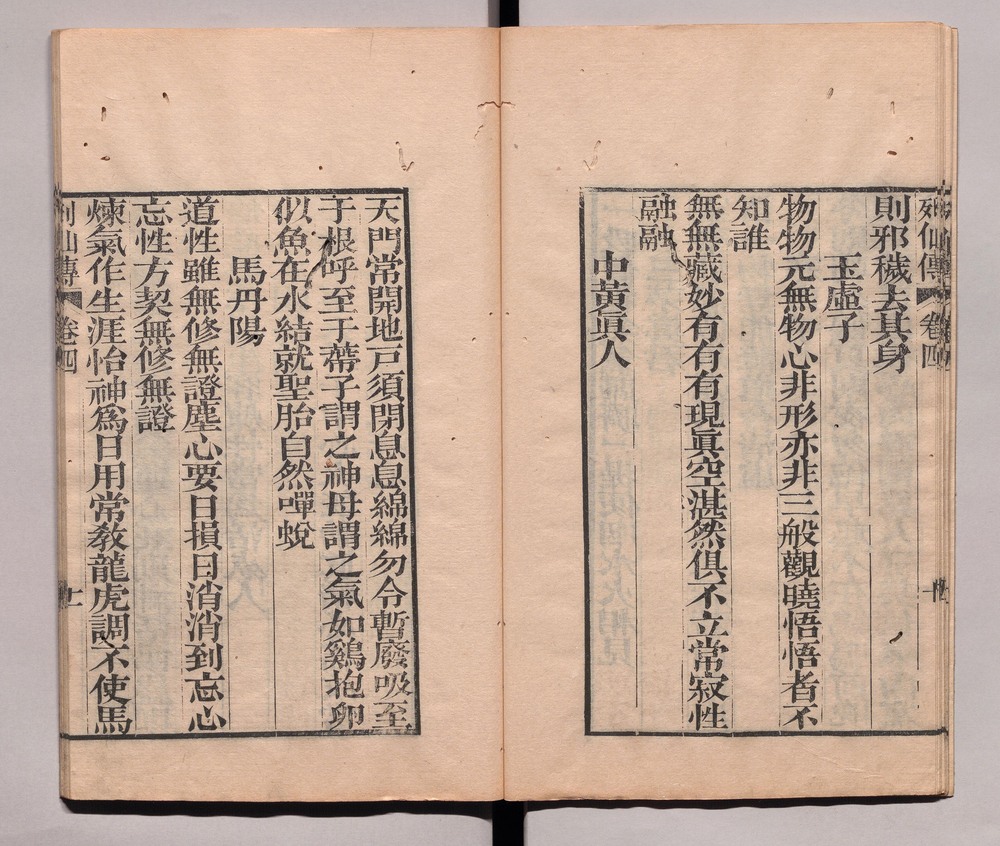 列仙傳 卷四
則邪穢去其身
玉虛子
物物元無物心非形亦非三般觀曉悟悟者不
知誰
無無藏妙有有有現眞空湛然俱不立常寂性
融融
中黃眞人
天門常開地戸須閉息息綿綿勿令暫廢吸至
于根呼至于蔕子謂之神母謂之氣如鷄抱卵
似魚在水結就聖胎自然嘽蛻
馬丹陽
道性雖無修無證塵心要日損日消消到忘心
忘性方契無修無證
煉氣作生涯怡神爲日用常教龍虎調不使馬
列仙傳 卷四 十一